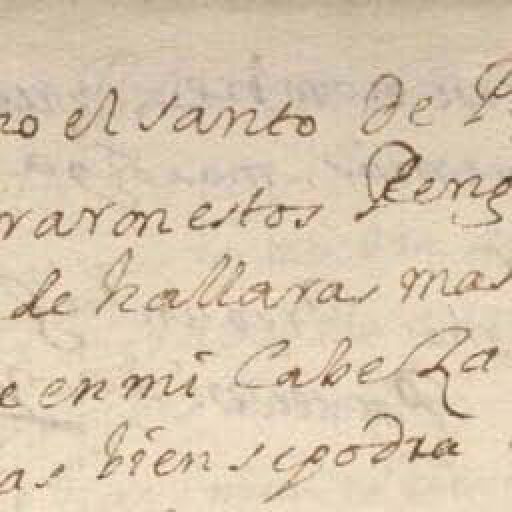 no el santo de P
raron estos Reng
de hallaras mas
e en mi CabeZa
as bien se podra